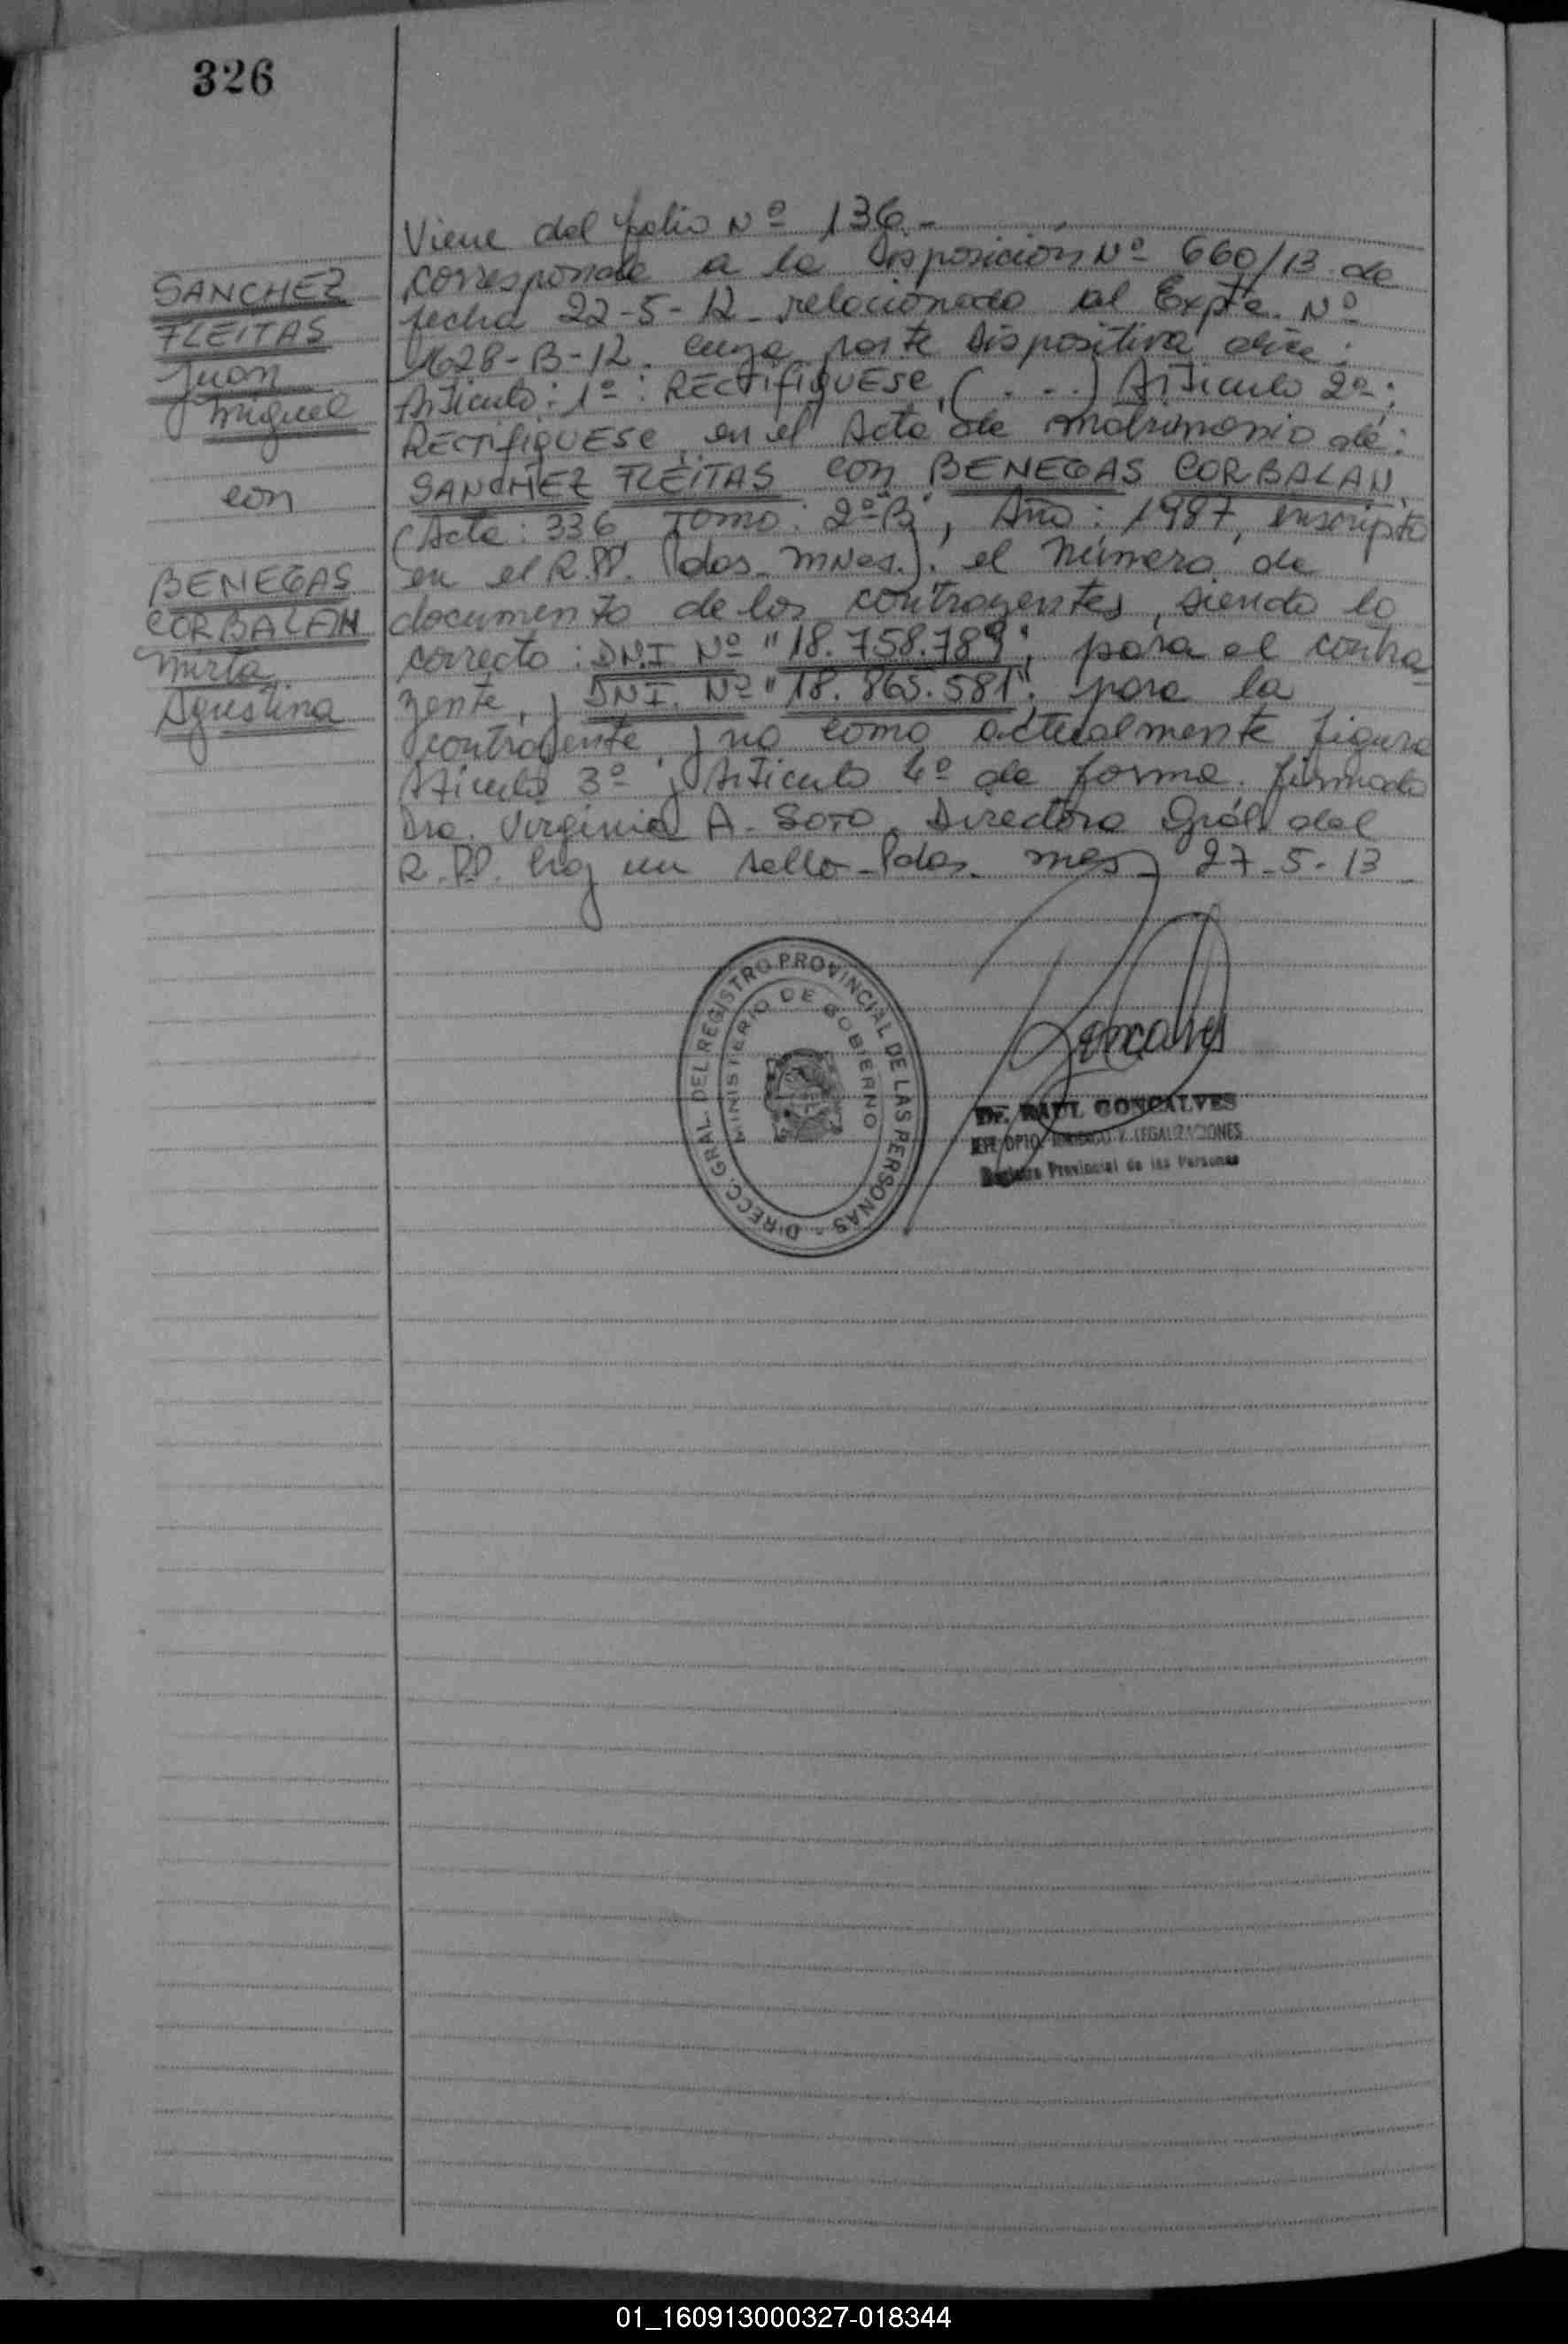 326
SANCHEZ
FLEITAS
Juan
Miguel
con
BENEGAS
CORBALAN
Mirta
Agustina
Viene del folio Nº 136.-
corresponde a la Disposición Nº 660/13 de
fecha 22-5-12 relacionado al Expte. Nº
1628-B-12. cuya parte Dispositiva dice:
Articulo: 1º: RECTIFIQUESE (...) Articulo 2º:
RECTIFIQUESE, en el Acta de matrimonio de:
SANCHEZ FLEITAS con BENEGAS CORBALAN
(Acta: 336, Tomo: 2º"B", Año: 1987, inscripto
en el R.PP. Pdas. Mnes.). el número de
documento de los contrayentes, siendo lo
correcto: DNI. Nº "18.758.789"; para el contra
yente, y DNI. Nº "18.865.581". para la
contrayente y no como actualmente figura
Articulo 3º y Articulo 4º de forma. firmado
Dra. Virginia A. Soto. Directora Gral. del
R.PP. hay un sello - Pdas. Mnes 27-5-13
DIRECC. GRAL. DEL REGISTRO PROVINCIAL DE LAS PERSONAS
MINISTERIO DE GOBIERNO
Goncalves
Dr. RAUL GONCALVES
JEFE DPTO. Y LEGALIZACIONES
Registro Provincial de las Personas
01_160913000327-018344